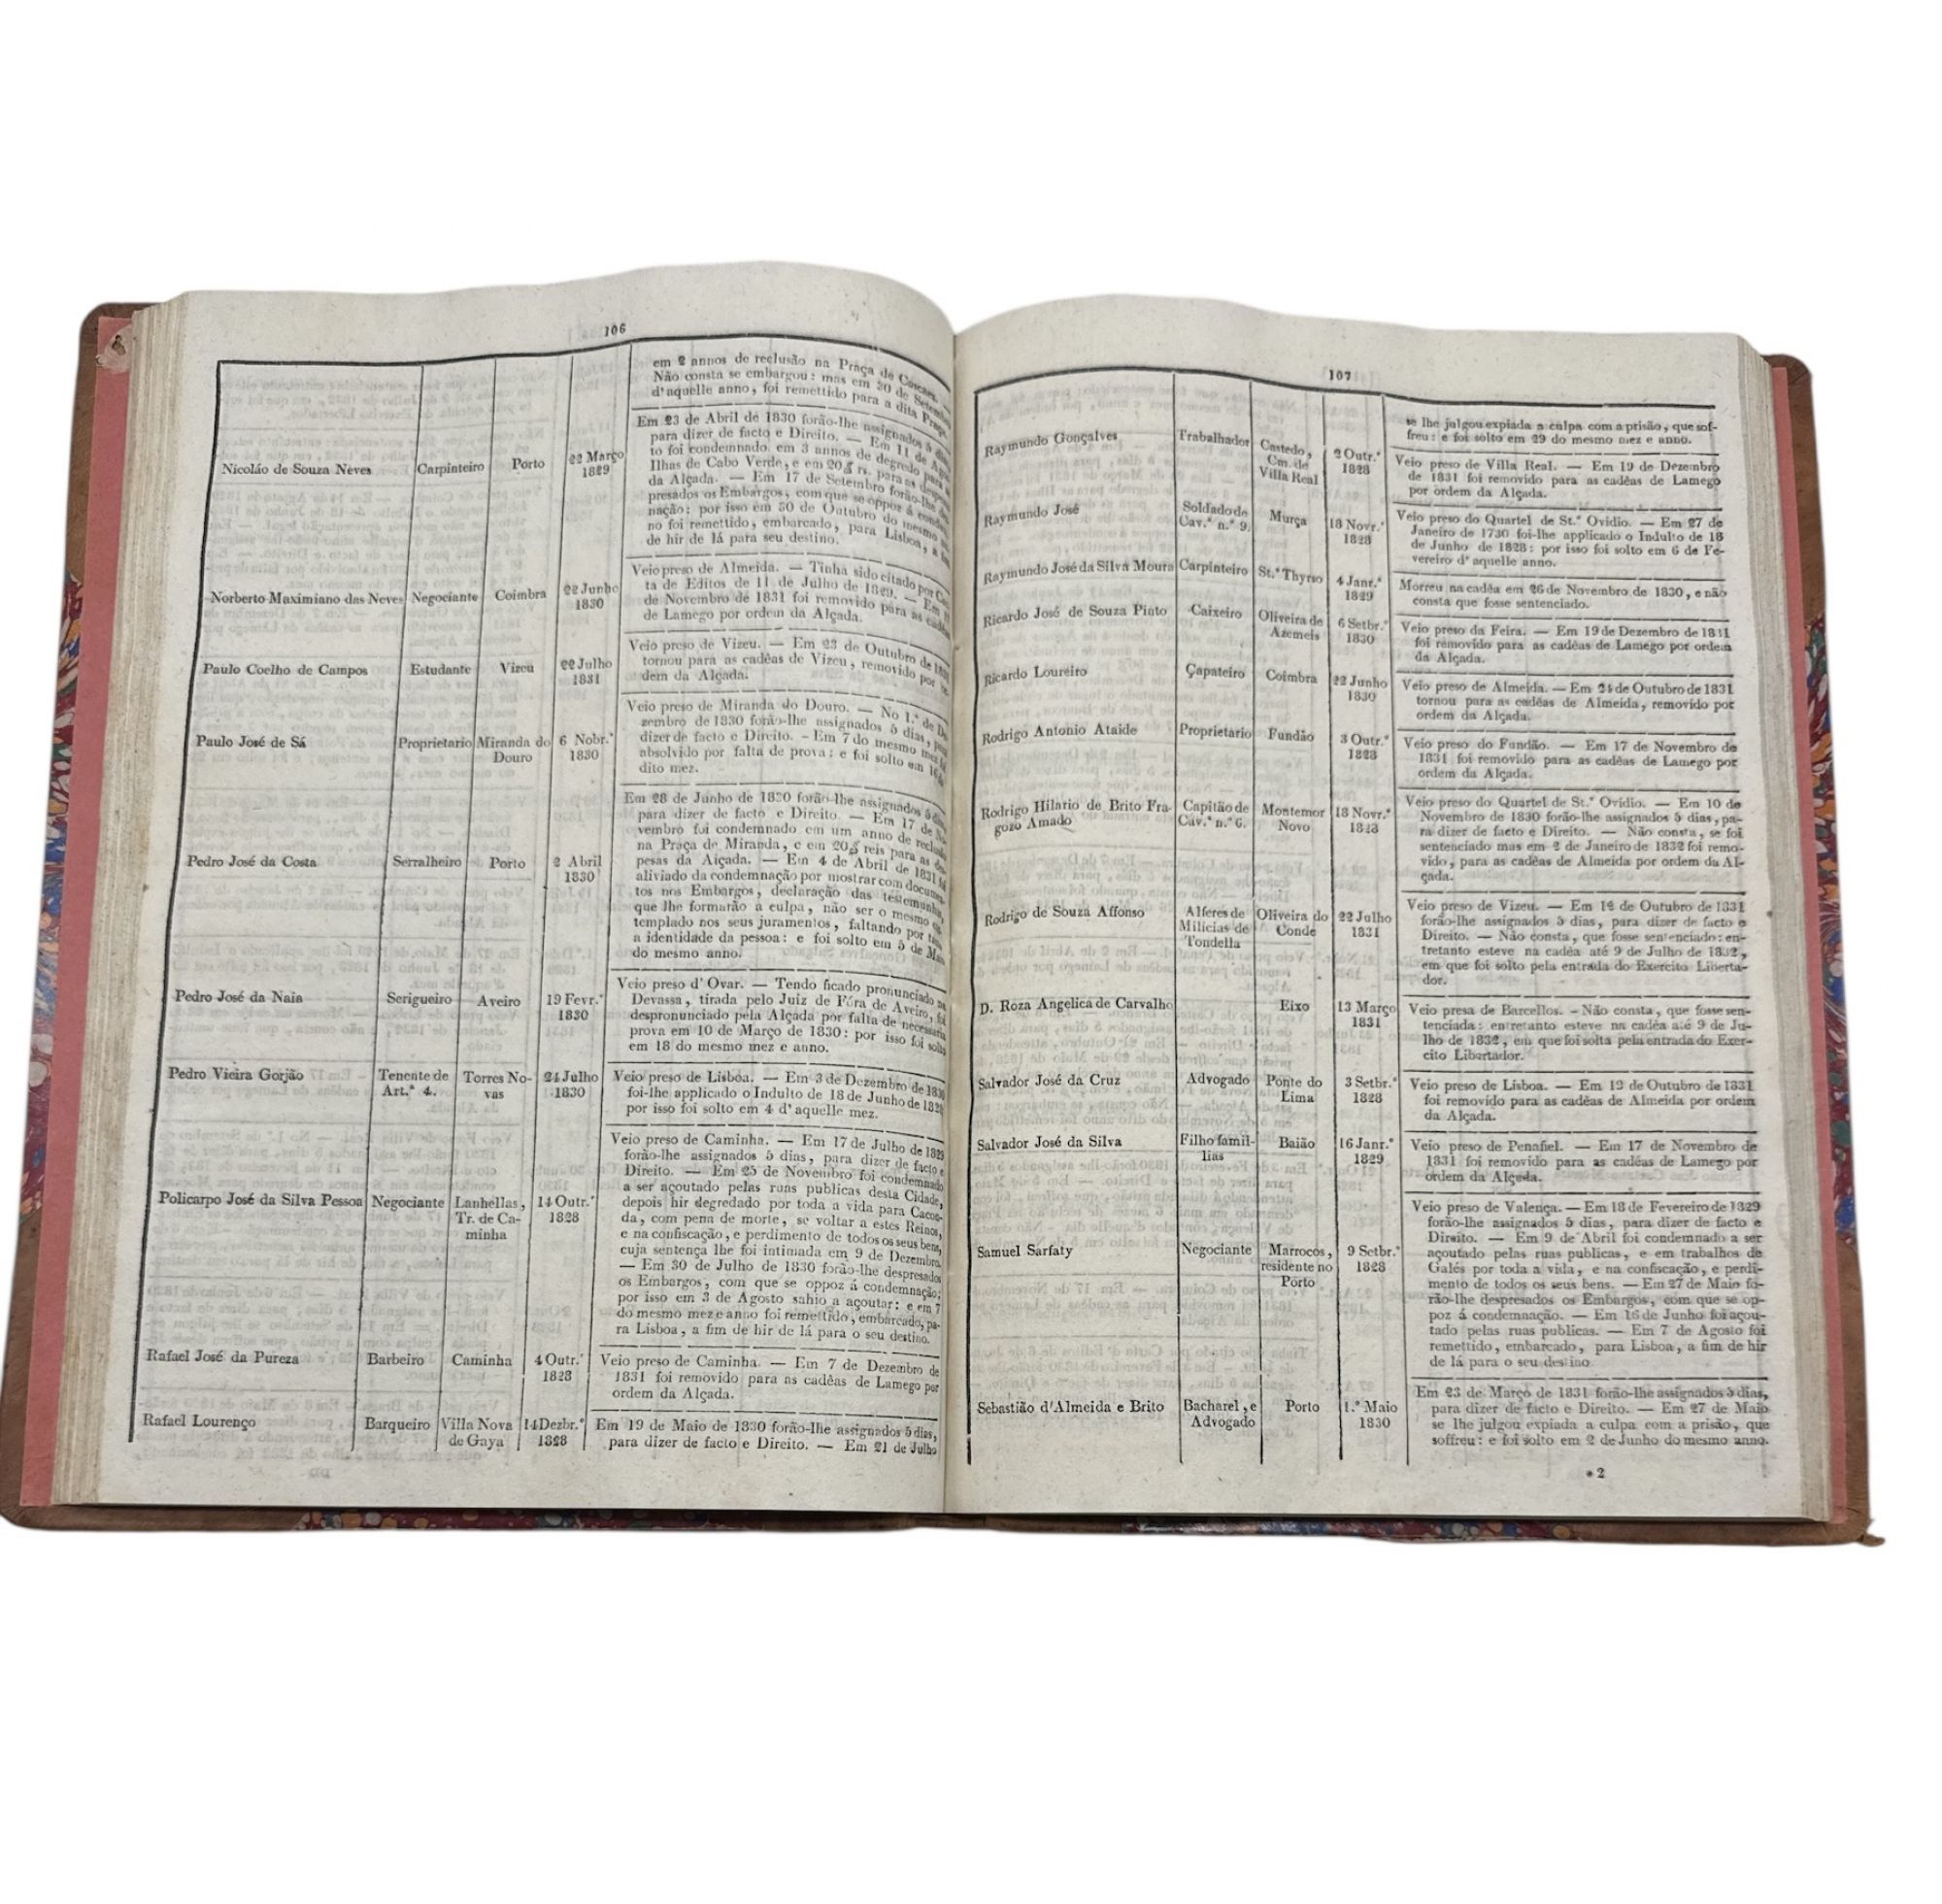 106
em 2 annos de reclusão na Praça de Cascaes.
Não consta se embargou: mas em 30 de Setembro
d'aquelle anno, foi remettido para a dita Praça.
Nicoláo de Souza Neves Carpinteiro Porto 22 Março 1829
Em 23 de Abril de 1830 forão-lhe assignados 5 dias
para dizer de facto e Direito. — Em 11 de
to foi condemnado em 3 annos de degredo para
Ilhas de Cabo Verde, e em 20$ rs. para as
da Alçada. — Em 17 de Setembro forão-lhe
presados os Embargos, com que se oppoz á
nação: por isso em 30 de Outubro do mesmo
no foi remettido, embarcado, para Lisboa, a
de hir de lá para seu destino.
Norberto Maximiano das Neves Negociante Coimbra 22 Junho 1830
Veio preso de Almeida. — Tinha sido citado por
ta de Editos de 11 de Julho de 1829. — Em
de Novembro de 1831 foi removido para as cadêas
de Lamego por ordem da Alçada.
Paulo Coelho de Campos Estudante Vizeu 22 Julho 1831
Veio preso de Vizeu. — Em 23 de Outubro de 1831
tornou para as cadêas de Vizeu, removido por
dem da Alçada.
Paulo José de Sá Proprietario Miranda do Douro 6 Nobr.º 1830
Veio preso de Miranda do Douro. — No 1.º de
zembro de 1830 forão-lhe assignados 5 dias, para
dizer de facto e Direito. – Em 7 do mesmo mez foi
absolvido por falta de prova: e foi solto em
dito mez.
Pedro José da Costa Serralheiro Porto 2 Abril 1830
Em 28 de Junho de 1830 forão-lhe assignados 5 dias
para dizer de facto e Direito. — Em 17 de
vembro foi condemnado em um anno de reclusão
na Praça de Miranda, e em 20$ reis para as
pesas da Alçada. — Em 4 de Abril de 1831 foi
aliviado da condemnação por mostrar com documen-
tos nos Embargos, declaração das testemunhas,
que lhe formarão a culpa, não ser o mesmo
templado nos seus juramentos, faltando por
a identidade da pessoa: e foi solto em 5 de Maio
do mesmo anno.
Pedro José da Naia Serigueiro Aveiro 19 Fevr.º 1830
Veio preso d'Ovar. — Tendo ficado pronunciado na
Devassa, tirada pelo Juiz de Fóra de Aveiro, foi
despronunciado pela Alçada por falta de necessaria
prova em 10 de Março de 1830: por isso foi solto
em 18 do mesmo mez e anno.
Pedro Vieira Gorjão Tenente de Art.ª 4. Torres No-vas 24 Julho 1830
Veio preso de Lisboa. — Em 3 de Dezembro de 1830
foi-lhe applicado o Indulto de 18 de Junho de 1828
por isso foi solto em 4 d'aquelle mez.
Policarpo José da Silva Pessoa Negociante Lanhellas, Tr. de Ca-minha 14 Outr.º 1828
Veio preso de Caminha. — Em 17 de Julho de 1829
forão-lhe assignados 5 dias, para dizer de facto e
Direito. — Em 25 de Novembro foi condemnado
a ser açoutado pelas ruas publicas desta Cidade,
depois hir degredado por toda a vida para Cacon-
da, com pena de morte, se voltar a estes Reinos,
e na confiscação, e perdimento de todos os seus bens,
cuja sentença lhe foi intimada em 9 de Dezembro.
— Em 30 de Julho de 1830 forão-lhe despresados
os Embargos, com que se oppoz á condemnação;
por isso em 3 de Agosto sahio a açoutar: e em 7
do mesmo mez e anno foi remettido, embarcado, pa-
ra Lisboa, a fim de hir de lá para o seu destino.
Rafael José da Pureza Barbeiro Caminha 4 Outr.º 1828
Veio preso de Caminha. — Em 7 de Dezembro de
1831 foi removido para as cadêas de Lamego por
ordem da Alçada.
Rafael Lourenço Barqueiro Villa Nova de Gaya 14 Dezbr.º 1828
Em 19 de Maio de 1830 forão-lhe assignados 5 dias,
para dizer de facto e Direito. — Em 21 de Julho
107
se lhe julgou expiada a culpa com a prisão, que sof-
freu: e foi solto em 29 do mesmo mez e anno.
Raymundo Gonçalves Trabalhador Castedo, Cm. de Villa Real 2 Outr.º 1828
Veio preso de Villa Real. — Em 19 de Dezembro
de 1831 foi removido para as cadêas de Lamego
por ordem da Alçada.
Raymundo José Soldado de Cav.ª n.º 9. Murça 18 Novr.º 1828
Veio preso do Quartel de St.º Ovidio. — Em 27 de
Janeiro de 1730 foi-lhe applicado o Indulto de 18
de Junho de 1828: por isso foi solto em 6 de Fe-
vereiro d'aquelle anno.
Raymundo José da Silva Moura Carpinteiro St.º Thyrso 4 Janr.º 1829
Morreu na cadêa em 26 de Novembro de 1830, e não
consta que fosse sentenciado.
Ricardo José de Souza Pinto Caixeiro Oliveira de Azemeis 6 Setbr.º 1830
Veio preso da Feira. — Em 19 de Dezembro de 1831
foi removido para as cadêas de Lamego por ordem
da Alçada.
Ricardo Loureiro Çapateiro Coimbra 22 Junho 1830
Veio preso de Almeida. — Em 24 de Outubro de 1831
tornou para as cadêas de Almeida, removido por
ordem da Alçada.
Rodrigo Antonio Ataide Proprietario Fundão 3 Outr.º 1828
Veio preso do Fundão. — Em 17 de Novembro de
1831 foi removido para as cadêas de Lamego por
ordem da Alçada.
Rodrigo Hilario de Brito Fra-gozo Amado Capitão de Cav.ª n.º 6. Montemor Novo 18 Novr.º 1828
Veio preso do Quartel de St.º Ovidio. — Em 10 de
Novembro de 1830 forão-lhe assignados 5 dias, pa-
ra dizer de facto e Direito. — Não consta, se foi
sentenciado mas em 2 de Janeiro de 1832 foi remo-
vido, para as cadêas de Almeida por ordem da Al-
çada.
Rodrigo de Souza Affonso Alferes de Milicias de Tondella Oliveira do Conde 22 Julho 1831
Veio preso de Vizeu. — Em 12 de Outubro de 1831
forão-lhe assignados 5 dias, para dizer de facto e
Direito. — Não consta, que fosse sentenciado: en-
tretanto esteve na cadêa até 9 de Julho de 1832,
em que foi solto pela entrada do Exercito Liberta-
dor.
D. Roza Angelica de Carvalho Eixo 13 Março 1831
Veio presa de Barcellos. – Não consta, que fosse sen-
tenciada: entretanto esteve na cadêa até 9 de Ju-
lho de 1832, em que foi solta pela entrada do Exer-
cito Libertador.
Salvador José da Cruz Advogado Ponte do Lima 3 Setbr.º 1828
Veio preso de Lisboa. — Em 19 de Outubro de 1831
foi removido para as cadêas de Almeida por ordem
da Alçada.
Salvador José da Silva Filho famil-lias Baião 16 Janr.º 1829
Veio preso de Penafiel. — Em 17 de Novembro de
1831 foi removido para as cadêas de Lamego por
ordem da Alçada.
Samuel Sarfaty Negociante Marrocos, residente no Porto 9 Setbr.º 1828
Veio preso de Valença. — Em 18 de Fevereiro de 1829
forão-lhe assignados 5 dias, para dizer de facto e
Direito. — Em 9 de Abril foi condemnado a ser
açoutado pelas ruas publicas, e em trabalhos de
Galés por toda a vida, e na confiscação, e perdi-
mento de todos os seus bens. — Em 27 de Maio fo-
rão-lhe despresados os Embargos, com que se op-
poz á condemnação. — Em 16 de Junho foi açou-
tado pelas ruas publicas. — Em 7 de Agosto foi
remettido, embarcado, para Lisboa, a fim de hir
de lá para o seu destino
Sebastião d'Almeida e Brito Bacharel, e Advogado Porto 1.º Maio 1830
Em 23 de Março de 1831 forão-lhe assignados 5 dias,
para dizer de facto e Direito. — Em 27 de Maio
se lhe julgou expiada a culpa com a prisão, que
soffreu: e foi solto em 2 de Junho do mesmo anno.
* 2